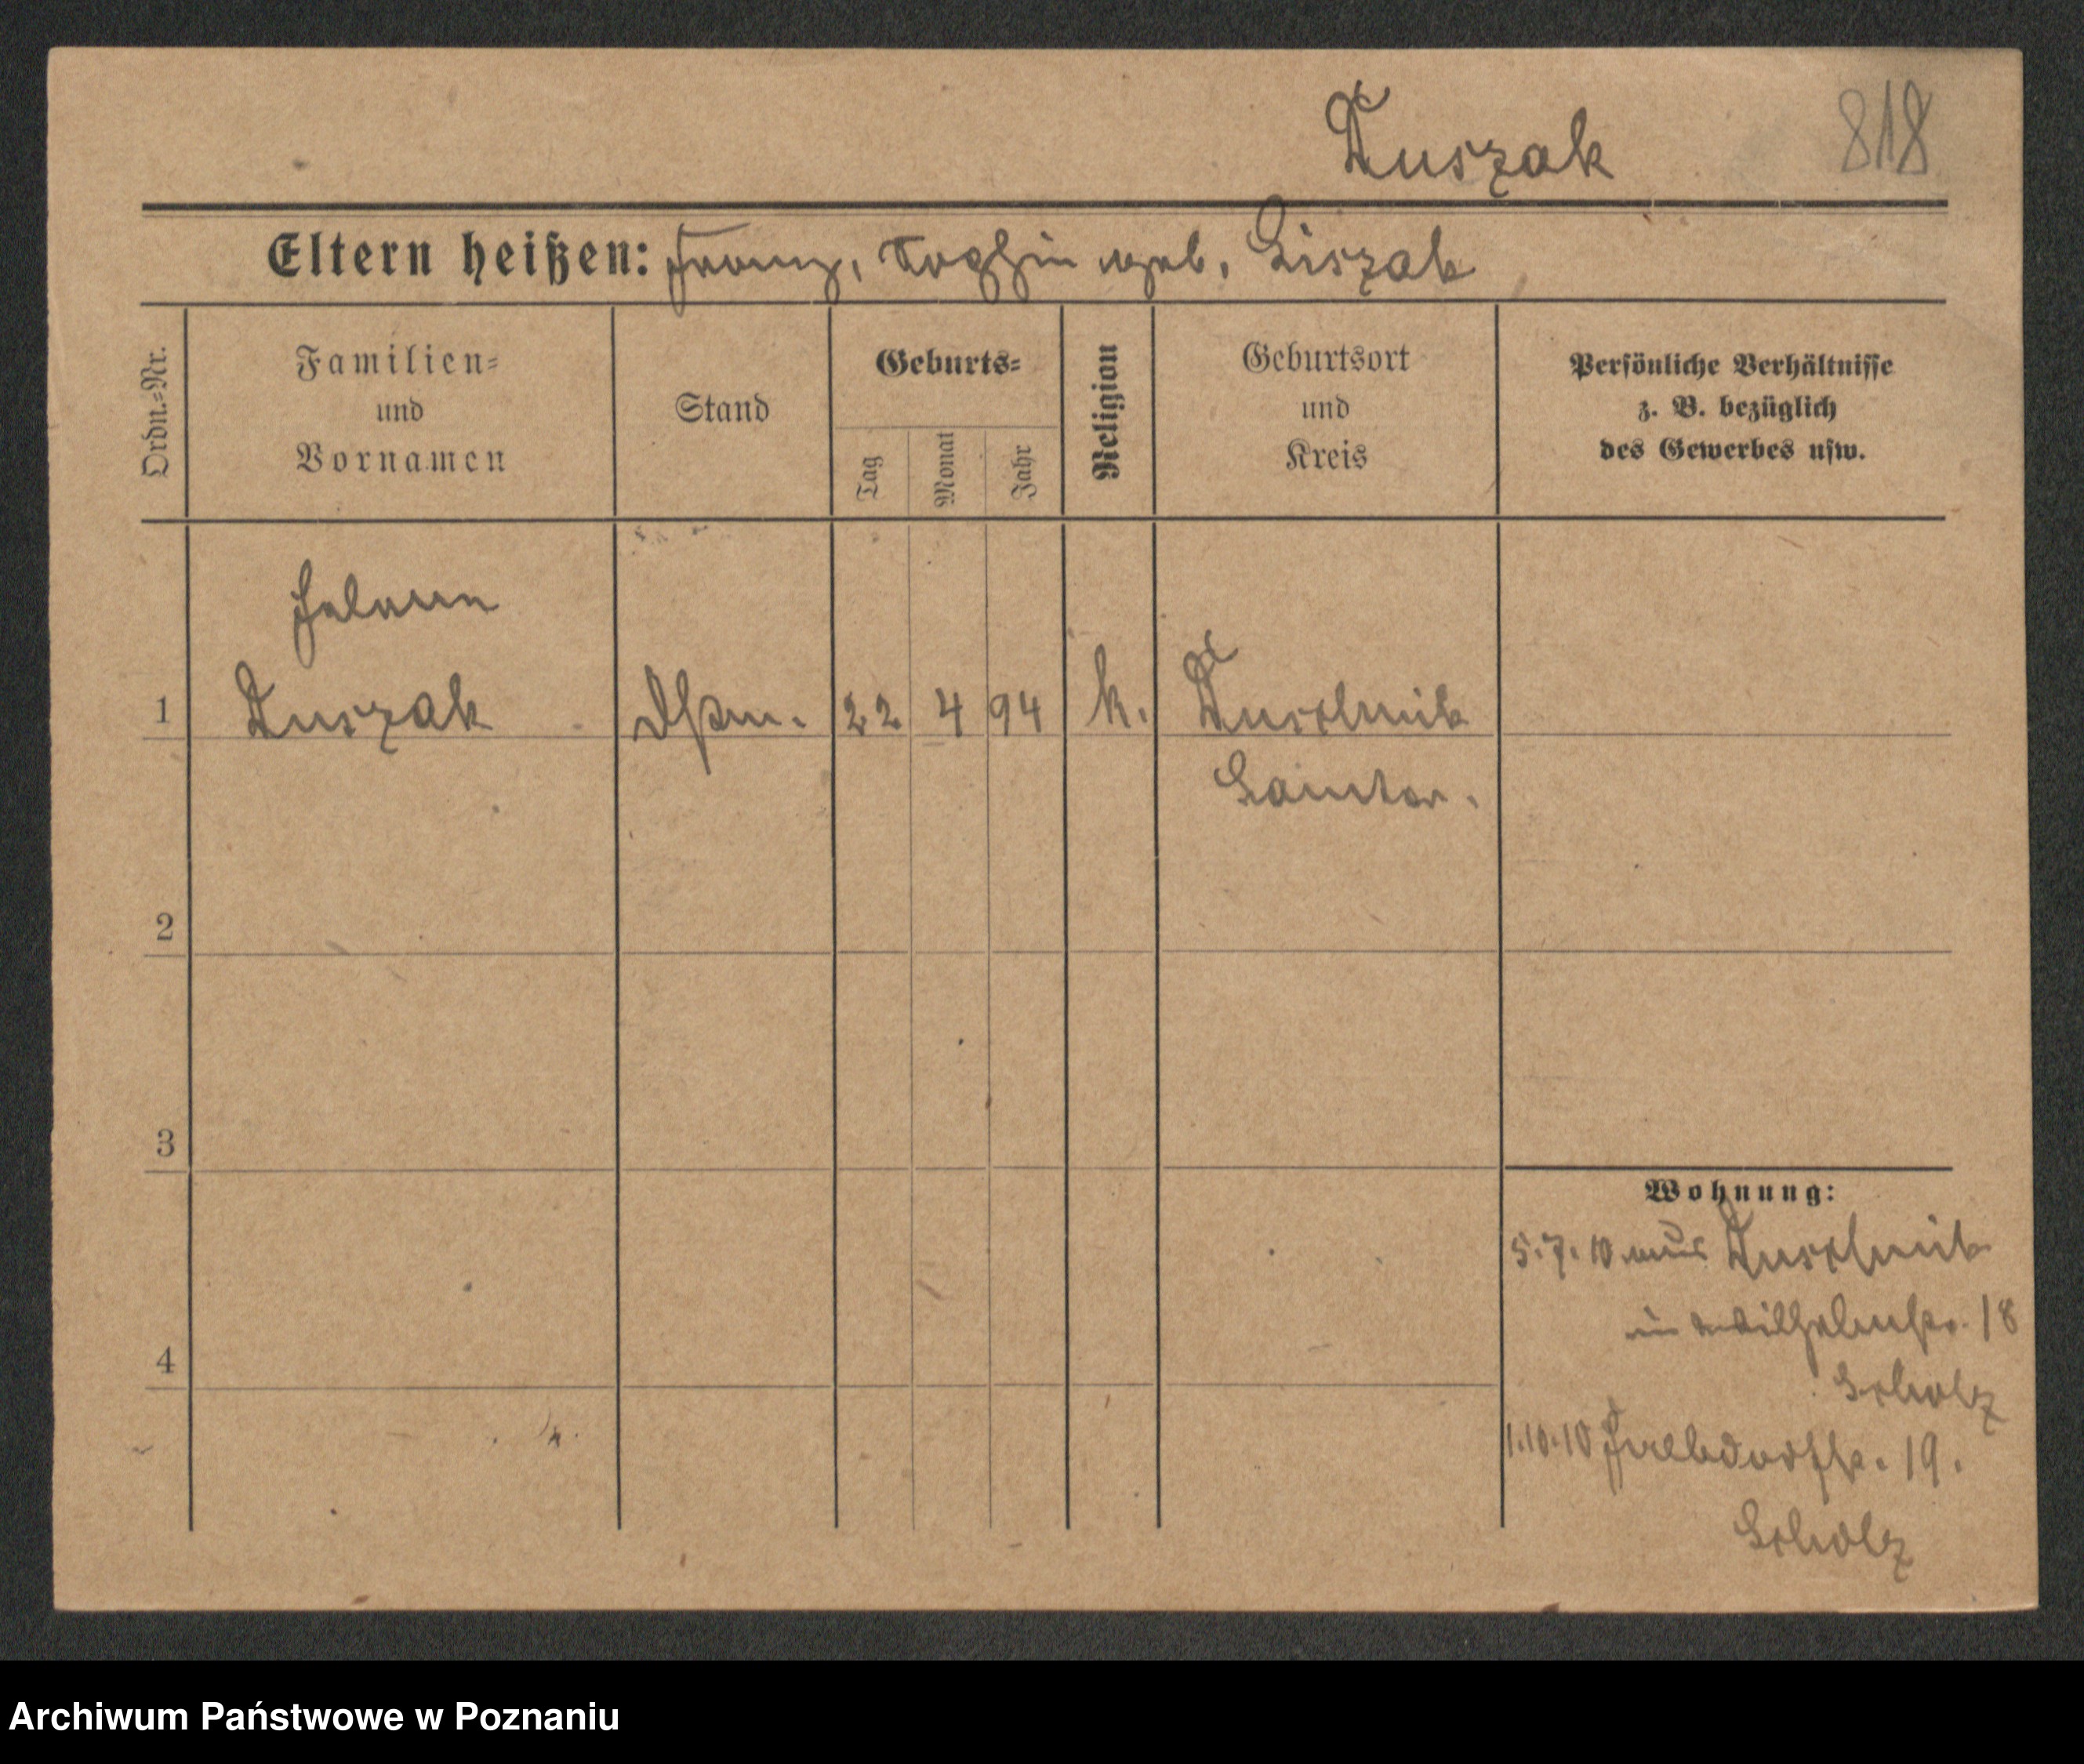 Duszak 818
Eltern heißen: Franz, Sophie geb. Liszak
Ordn.-Nr.
Familien-
und
Vornamen
Stand
Geburts-
Tag
Monat
Jahr
Religion
Geburtsort
und
Kreis
Persönliche Verhältnisse
z. B. bezüglich
des Gewerbes usw.
Helene
1 Duszak Dstm. 22 4 94 k. Duschnik
Samter.
2
3
4
Wohnung:
5.7.10 aus Duschnik
Wilhelmstr. 18
Scholz
1.10.10 19.
Scholz
Archiwum Państwowe w Poznaniu